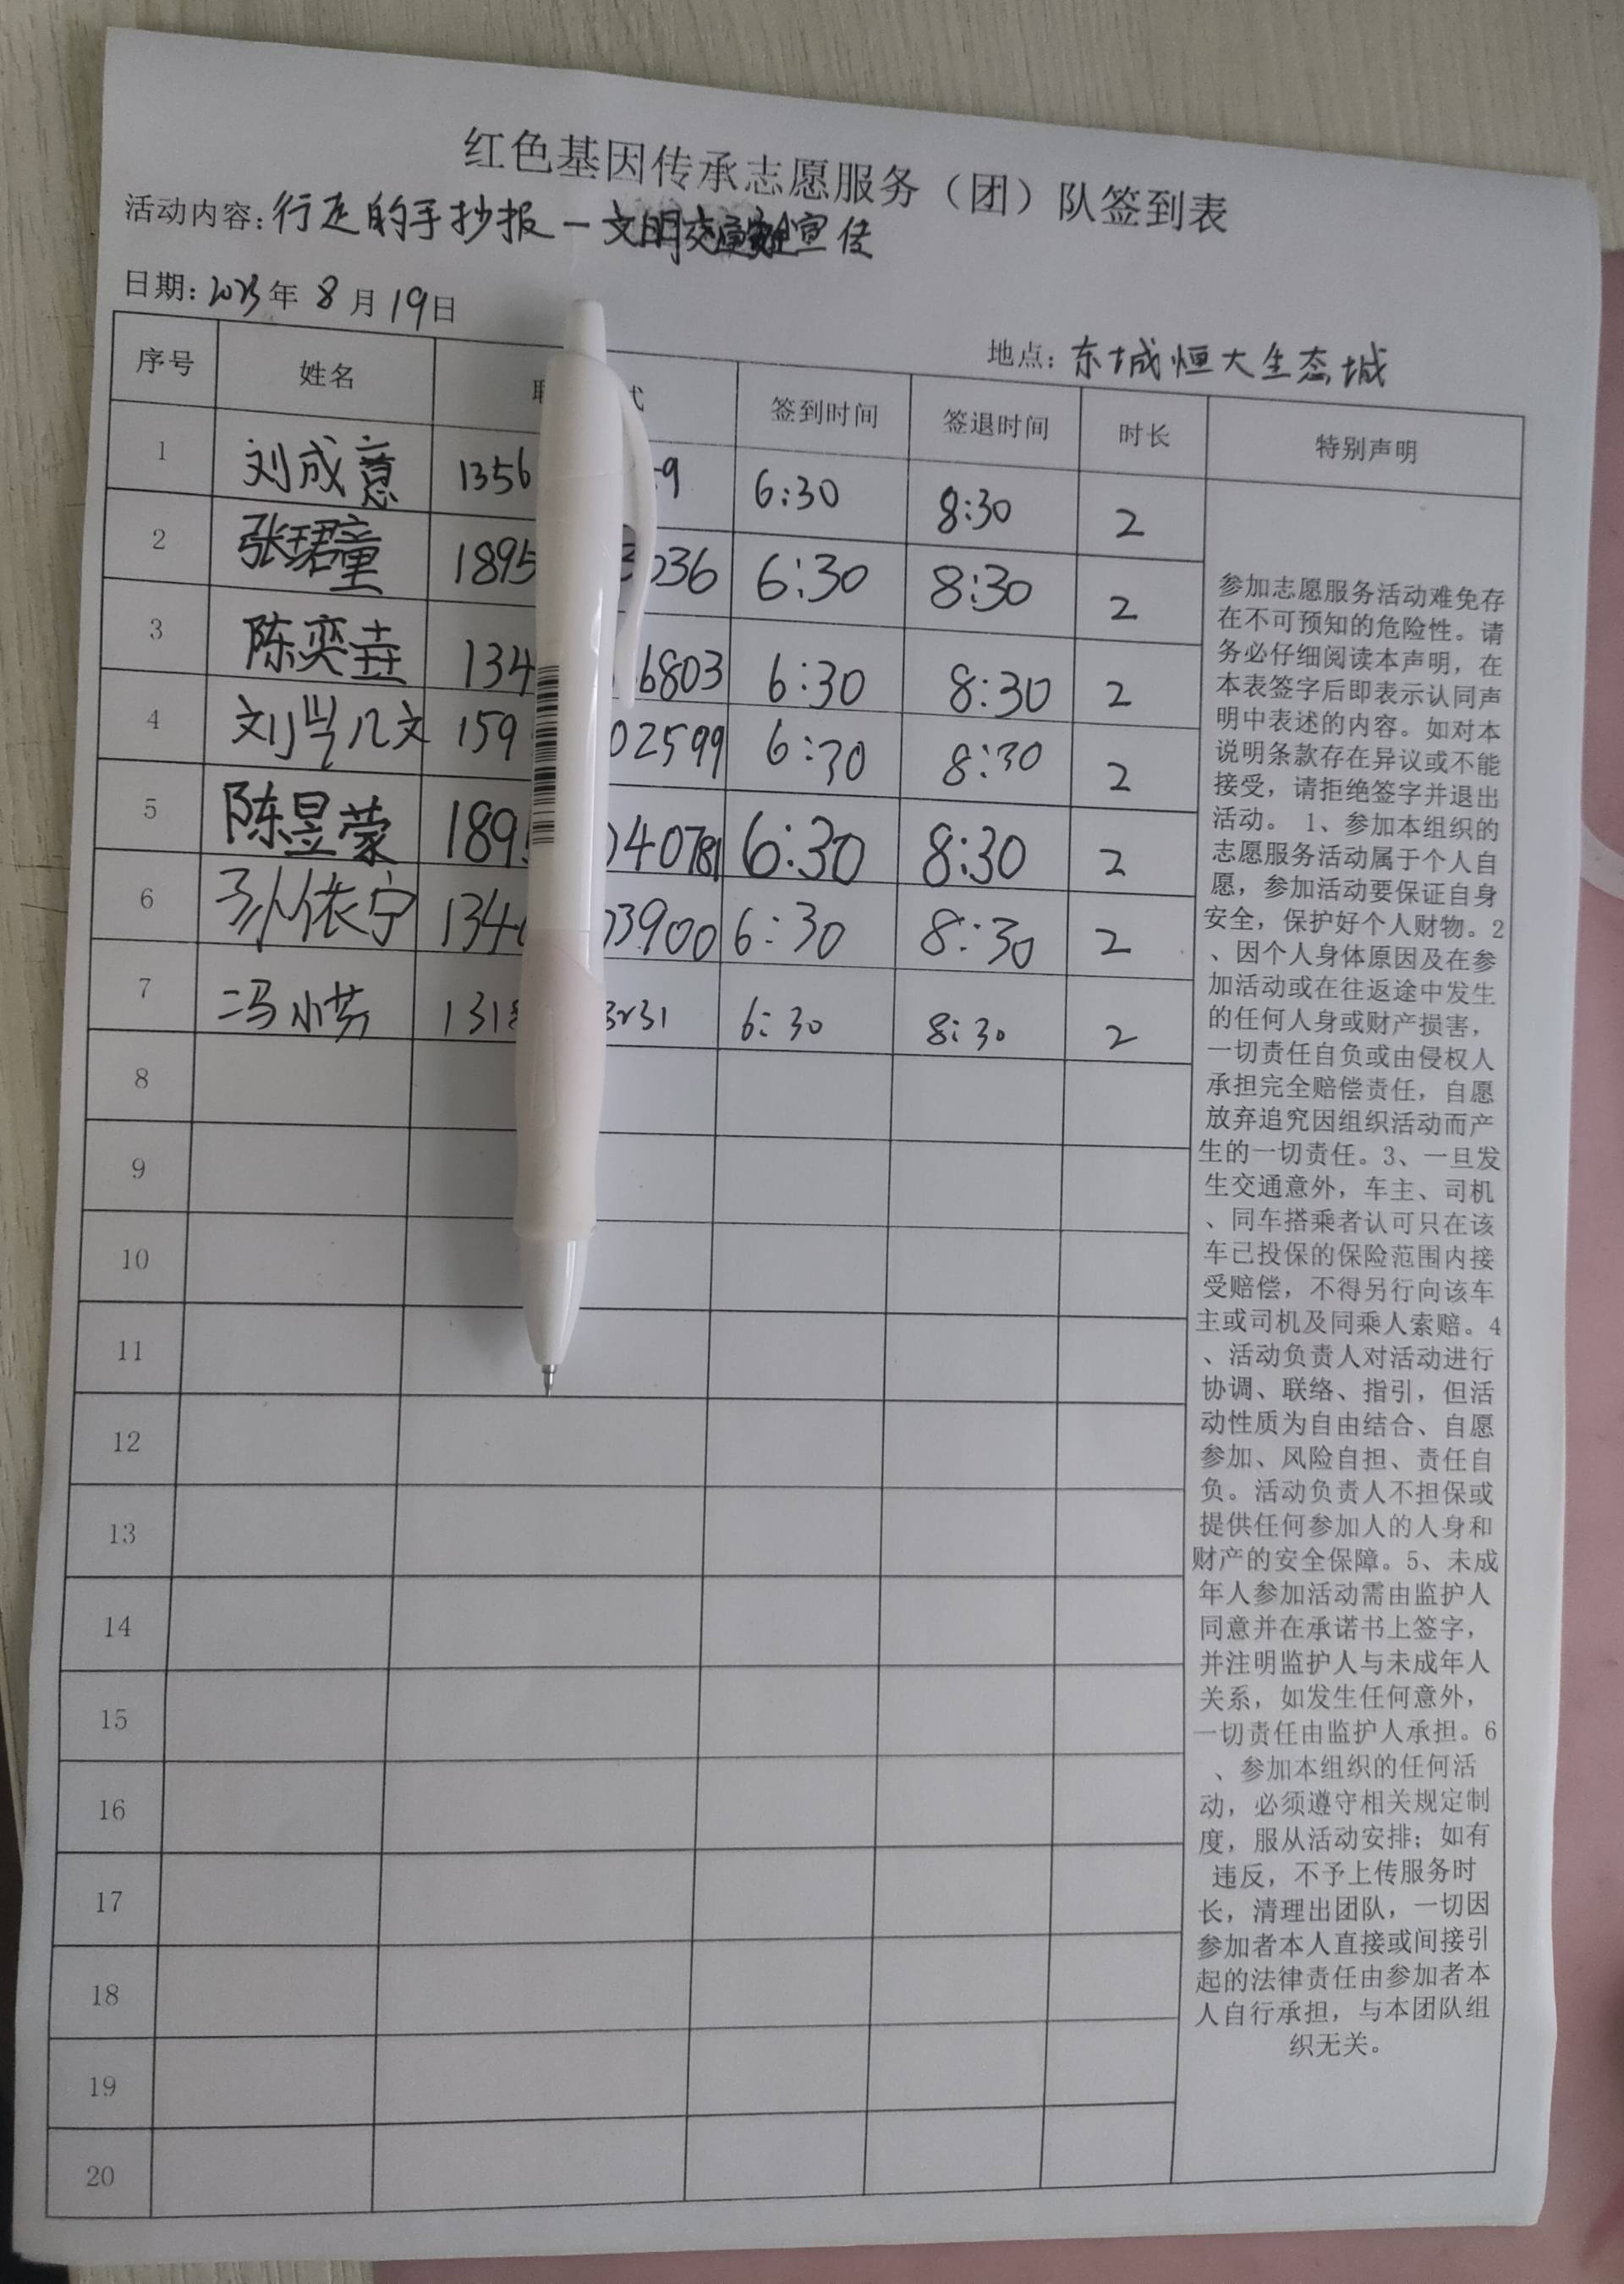 红色基因传承志愿服务（团）队签到表
活动内容：行走的手抄报－文明交通安全宣传
日期：2023年8月19日
地点：东城恒大生态城
序号 姓名 式 签到时间 签退时间 时长 特别声明
1 刘成意 1356 9 6:30 8:30 2
2 张珺童 1895 036 6:30 8:30 2
3 陈奕垚 134 6803 6:30 8:30 2
4 159 02599 6:30 8:30 2
5 陈昱蒙 189 40781 6:30 8:30 2
6 孙依宁 134 03900 6:30 8:30 2
7 冯小芳 131 3231 6:30 8:30 2
8
9
10
11
12
13
14
15
16
17
18
19
20
参加志愿服务活动难免存
在不可预知的危险性。请
务必仔细阅读本声明，在
本表签字后即表示认同声
明中表述的内容。如对本
说明条款存在异议或不能
接受，请拒绝签字并退出
活动。 1、参加本组织的
志愿服务活动属于个人自
愿，参加活动要保证自身
安全，保护好个人财物。2
、因个人身体原因及在参
加活动或在往返途中发生
的任何人身或财产损害，
一切责任自负或由侵权人
承担完全赔偿责任，自愿
放弃追究因组织活动而产
生的一切责任。3、一旦发
生交通意外，车主、司机
、同车搭乘者认可只在该
车已投保的保险范围内接
受赔偿，不得另行向该车
主或司机及同乘人索赔。4
、活动负责人对活动进行
协调、联络、指引，但活
动性质为自由结合、自愿
参加、风险自担、责任自
负。活动负责人不担保或
提供任何参加人的人身和
财产的安全保障。5、未成
年人参加活动需由监护人
同意并在承诺书上签字，
并注明监护人与未成年人
关系，如发生任何意外，
一切责任由监护人承担。6
、参加本组织的任何活
动，必须遵守相关规定制
度，服从活动安排；如有
违反，不予上传服务时
长，清理出团队，一切因
参加者本人直接或间接引
起的法律责任由参加者本
人自行承担，与本团队组
织无关。